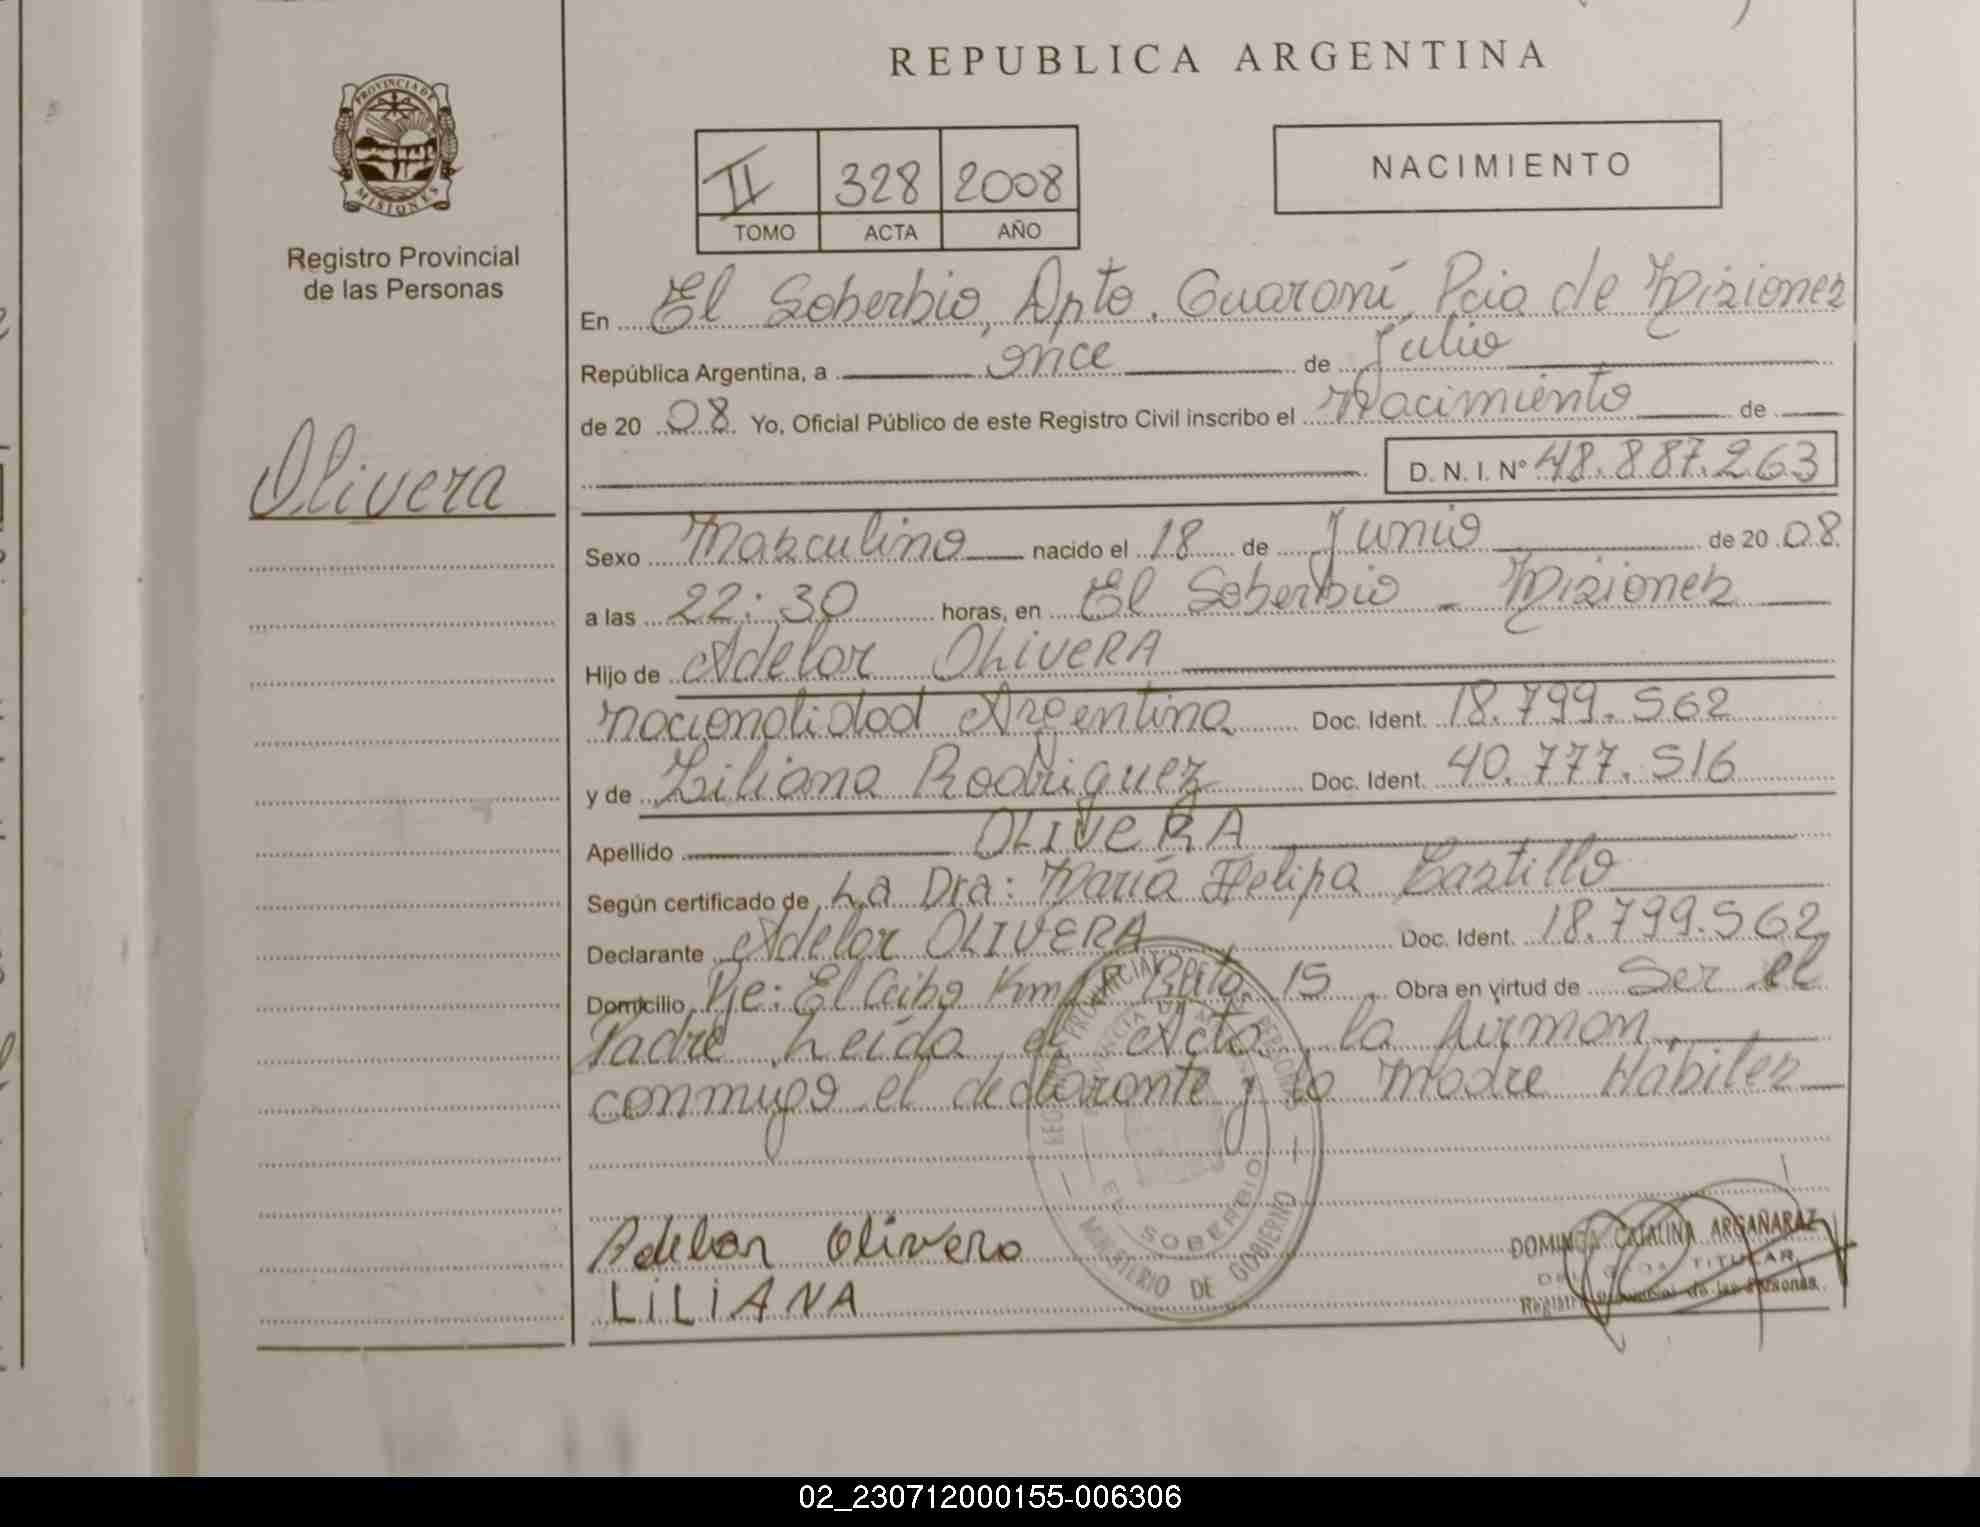 REPUBLICA ARGENTINA
PROVINCIA DE MISIONES
Registro Provincial
de las Personas
II 328 2008
TOMO ACTA AÑO
NACIMIENTO
En El Soberbio, Dpto. Guaraní Pcia de Misiones
República Argentina, a once de Julio
de 2008. Yo, Oficial Público de este Registro Civil inscribo el Nacimiento de
D. N. I. N° 48.887.263
Olivera
Sexo Masculino nacido el 18 de Junio de 2008
a las 22:30 horas, en El Soberbio - Misiones
Hijo de Adelar OLIVERA
nacionalidad Argentina Doc. Ident. 18.799.562
y de Liliana Rodriguez Doc. Ident. 40.777.516
Apellido OLIVERA
Según certificado de La Dra: María Felipa Castillo
Declarante Adelar OLIVERA Doc. Ident. 18.799.562
Domicilio Pje: El Ceibo Km 15 Obra en virtud de Ser el
Padre Leída el Acta, la firman
conmigo el declarante y la madre Hábiles
Adelar Olivera
LILIANA
EL SOBERBIO
MINISTERIO DE GOBIERNO
DOMINGA CATALINA ARGAÑARAZ
TITULAR
Registro Provincial de las Personas
02_230712000155-006306